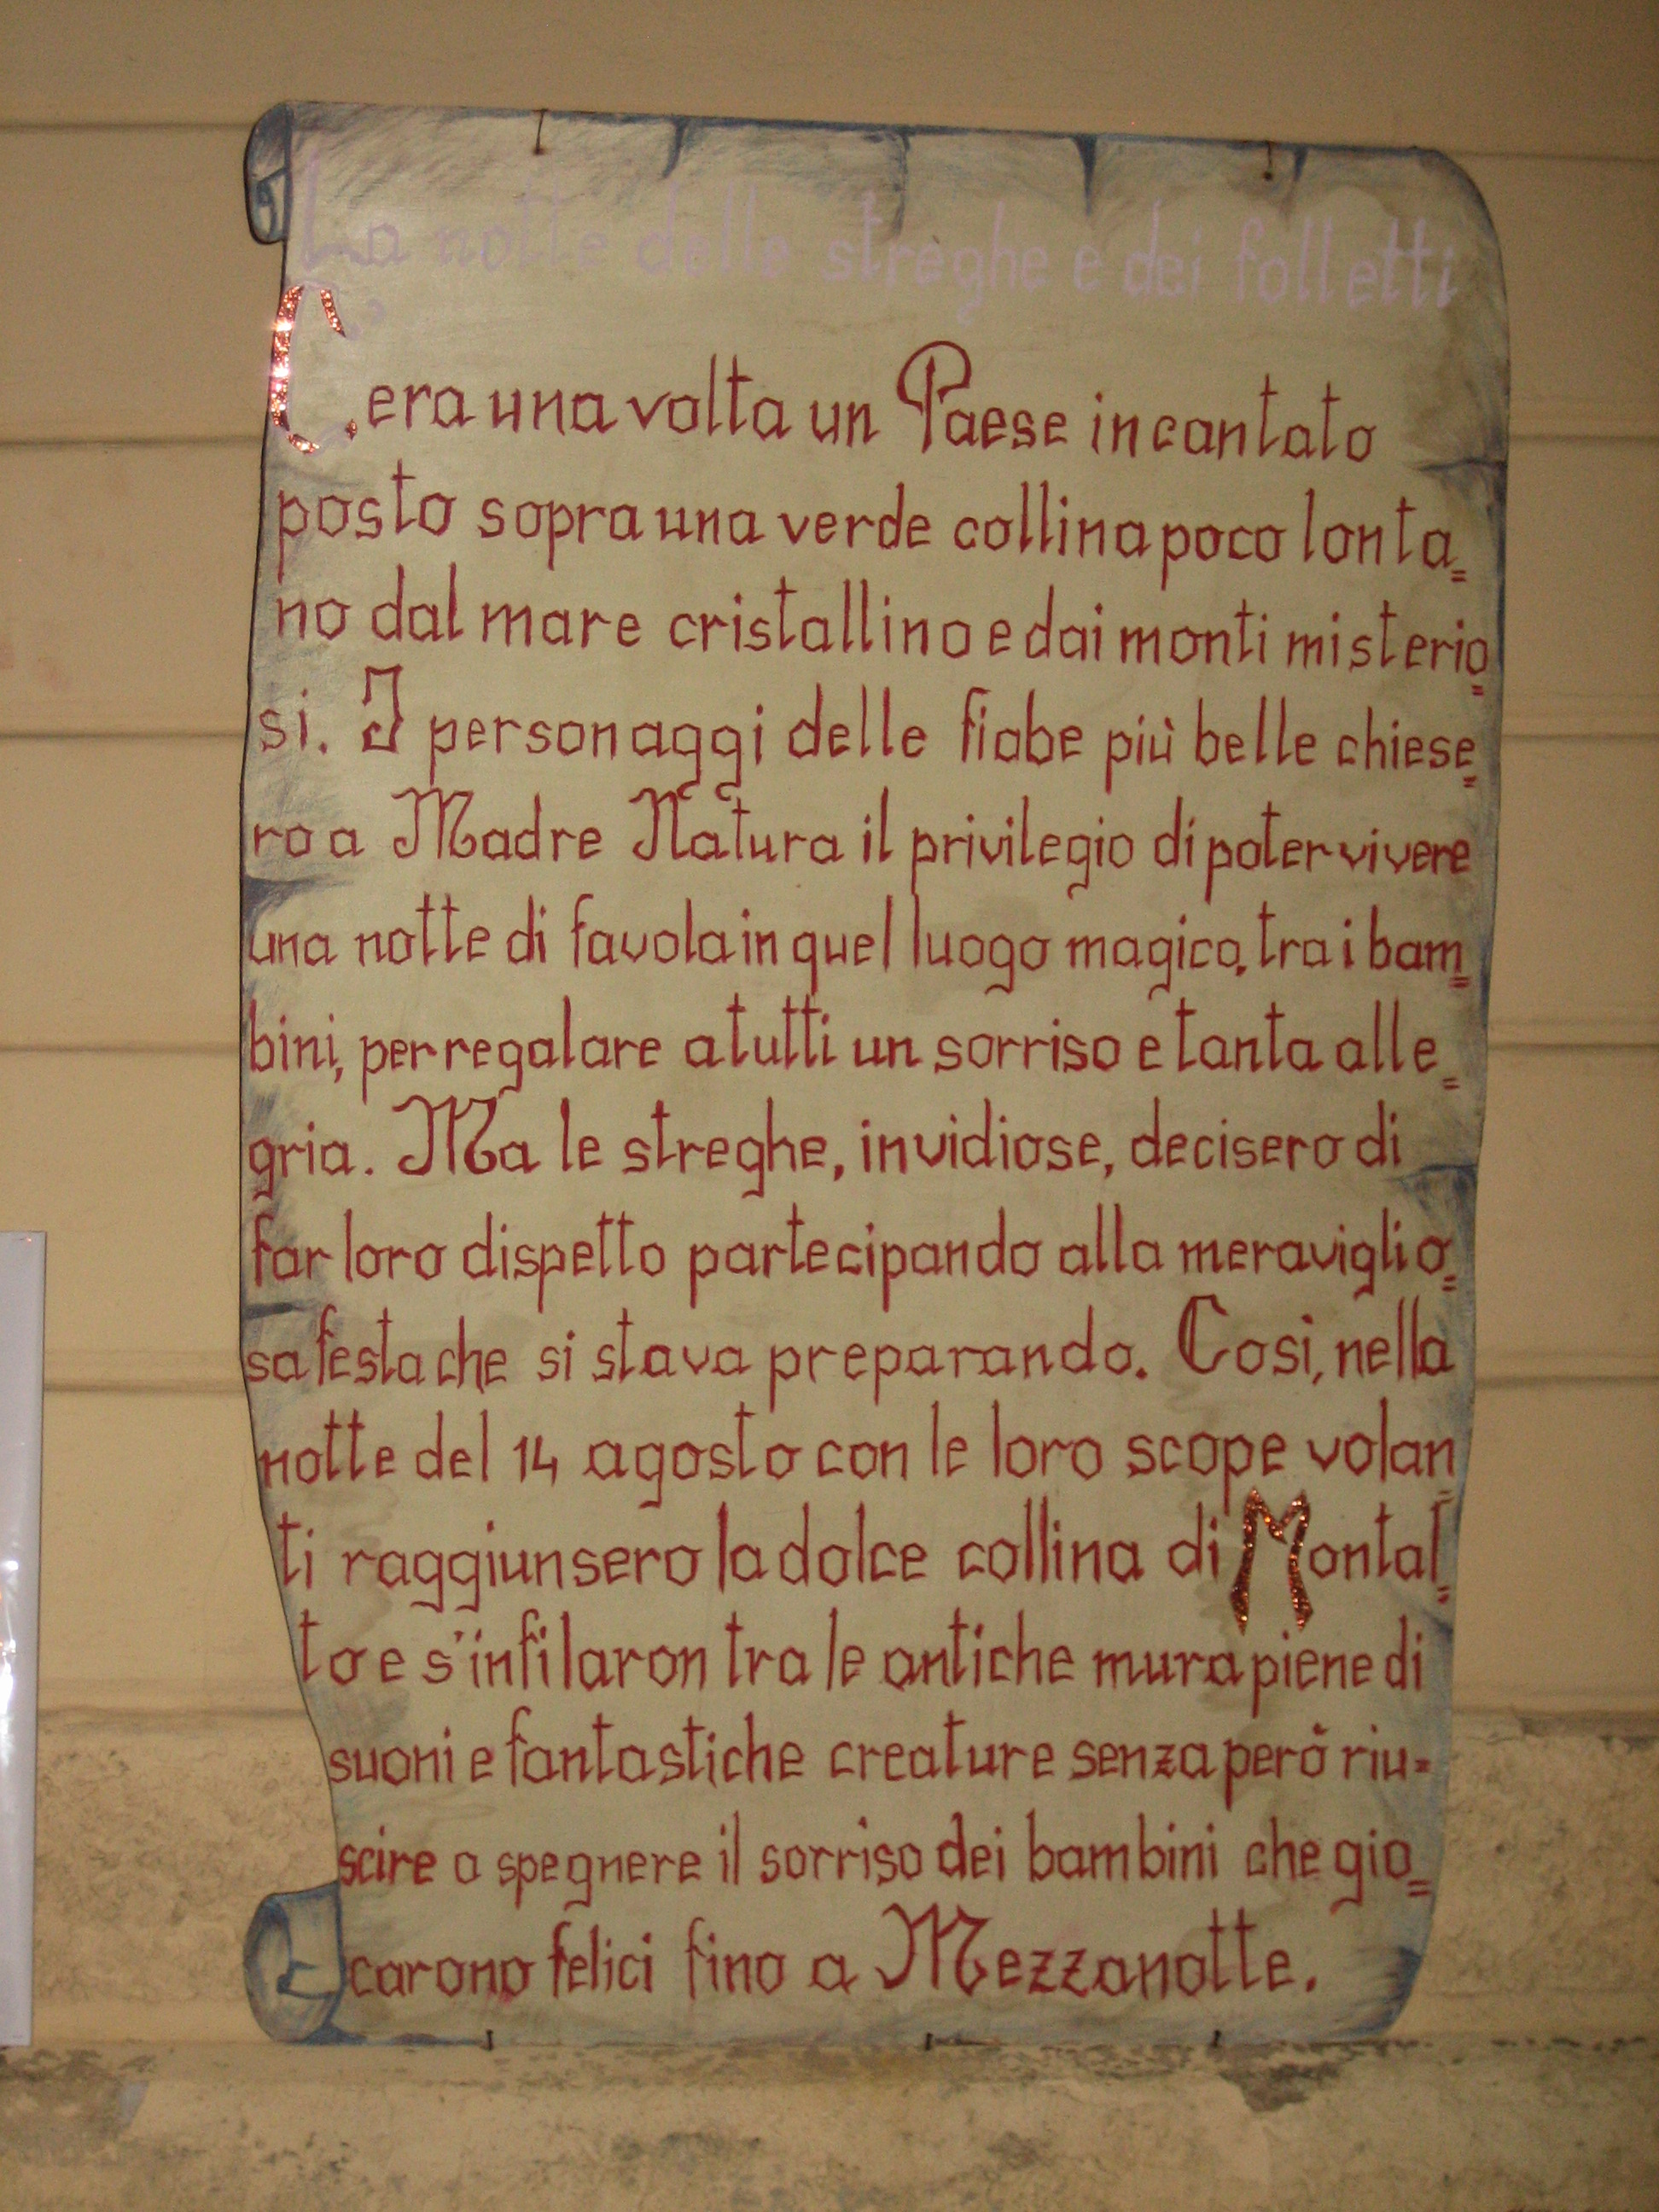 La notte delle streghe e dei folletti
C'era una volta un Paese incantato
posto sopra una verde collina poco lonta=
no dal mare cristallino e dai monti misterio=
si. I personaggi delle fiabe più belle chiese=
ro a Madre Natura il privilegio di poter vivere
una notte di favola in quel luogo magico, tra i bam=
bini, per regalare a tutti un sorriso e tanta alle=
gria. Ma le streghe, invidiose, decisero di
far loro dispetto partecipando alla meraviglio=
sa festa che si stava preparando. Così, nella
notte del 14 agosto con le loro scope volan=
ti raggiunsero la dolce collina di Montal=
to e s'infilaron tra le antiche mura piene di
suoni e fantastiche creature senza però riu=
scire a spegnere il sorriso dei bambini che gio=
carono felici fino a Mezzanotte.